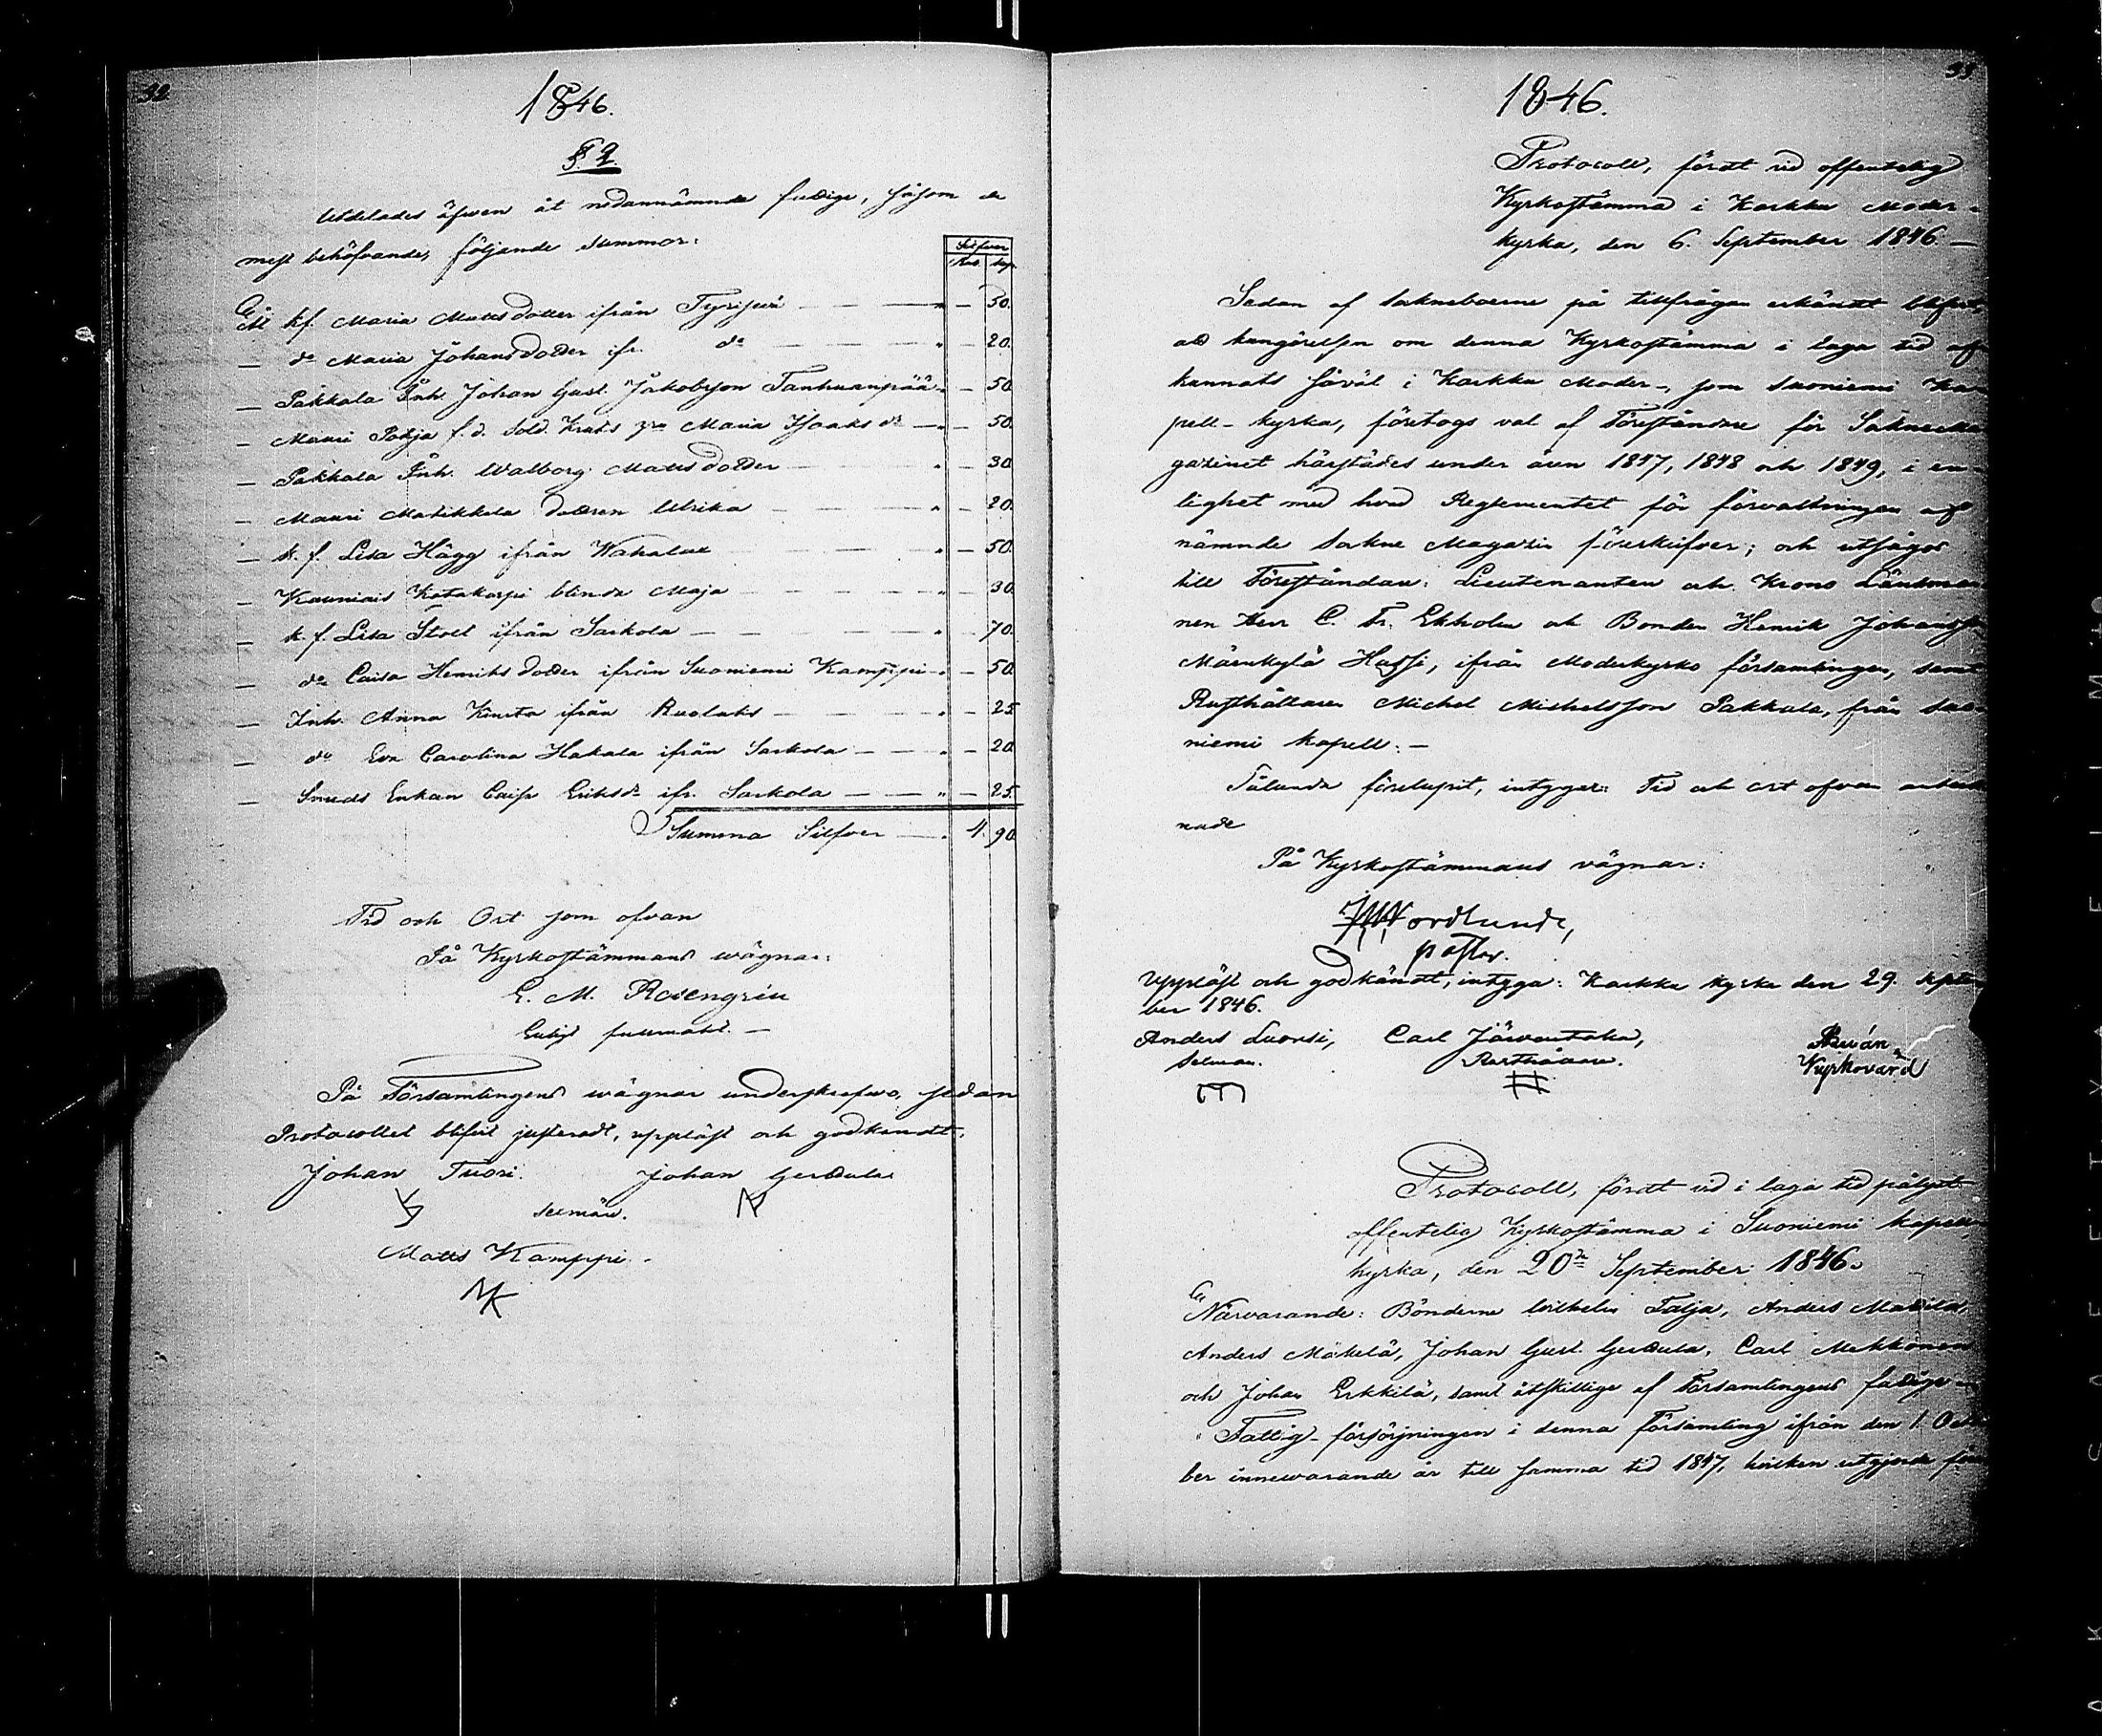 32.
1846.
§ 2.
Utdelades äfwen åt nedannämnde fattige, såsom de
mest behöfvande, följande summor:
Silfver
Rub. kop.
Åt kf. Maria Mattsdotter ifrån Tyrisevä — — — " — 30.
— do Maria Johansdotter ifr. do — — — " — 20.
— Pakkala Inh. Johan Gust. Jakobsson Tanhuanpää " — 50.
— Mauri Pohja f. d. Sold. Krats Maria Isaksdr — " — 50.
— Pakkala Inh. Walborg Mattsdotter — — — " — 30.
— Mauri Matikkala dottren Ulrika — — — " — 20.
— k. f. Lisa Hägg ifrån Wahalax — — — " — 50.
— Kauniais Katakorpi blinda Maja — — — " — 30.
— k. f. Lisa Stoll ifrån Sarkola — — — " — 70.
— do Caisa Henriksdotter ifrån Suoniemi Kamppi " — 50.
— Inh. Anna ifrån Kuolatis — — — " — 25.
— do Eva Carolina Hakala ifrån Sarkola — — " — 20.
— Smeds Enkan Caisa Eriksdr ifr. Sarkola — — " — 25.
Summa Silfver — " 4. 90.
Tid och Ort som ofvan
På Kyrkostämmans wägnar:
E. M. Rosengrén
Enligt fullmakt. —
På Församlingens wägnar underskrefwo, sedan
Protocollet blifvit justeradt, uppläst och godkändt.
Johan Tuori. Johan Gerdula
sexmän.
Matts Kamppi.
MK
33.
1846.
Protocoll, fördt vid offentelig
Kyrkostämma i Karkku Moder-
kyrka, den 6. September 1846. —
Sedan af Sokneboerne på tillfrågan erkändt blifvit,
att kungörelsen om denna Kyrkostämma i laga tid af
kunnats såväl i Karkku Moder-, som Suoniemi Ka
pell-kyrka, företogs val af Föreståndare för Sockne Ma
gazinet härstädes under åren 1847, 1848 och 1849, i en
lighet med hvad Reglementet för förvaltningen af
nämnde Sokne Magazin föreskrifver; och utsågos
till Föreståndare: Lieutenanten och Krono Länsman
nen Herr C. Fr. Ekholm och Bonden Henrik Johansson
Märnkylä Hassi, ifrån Moderkyrko församlingen, samt
Rusthållaren Michel Michelsson Pakkala, från Suo
niemi kapell: —
Sålunda förelupit, intygar: Tid och ort ofvan anteck
nade
På Kyrkostämmans vägnar:
Nordlund,
pastor.
Uppläst och godkändt, intyga: Karkku kyrka den 29. Septem
ber 1846.
Anders Luorsi, Carl Järventaka,
Sexman. Rusthållare. Kyrkovärd
Protocoll, fördt vid i laga tid pålyst
offentelig Kyrkostämma i Suoniemi kapell
kyrka, den 20de September 1846.
Närvarande: Bönderne Wilhelm Talja, Anders Mattila,
Anders Mäkelä, Johan Gust. Gerdula, Carl Mekkonen
och Johan Erkkilä, samt åtskillige af Församlingens fattige —
Fattig-försörjningen i denna Församling ifrån den 1. Octo
ber innewarande år till samma tid 1847, hvilken utgjorde före